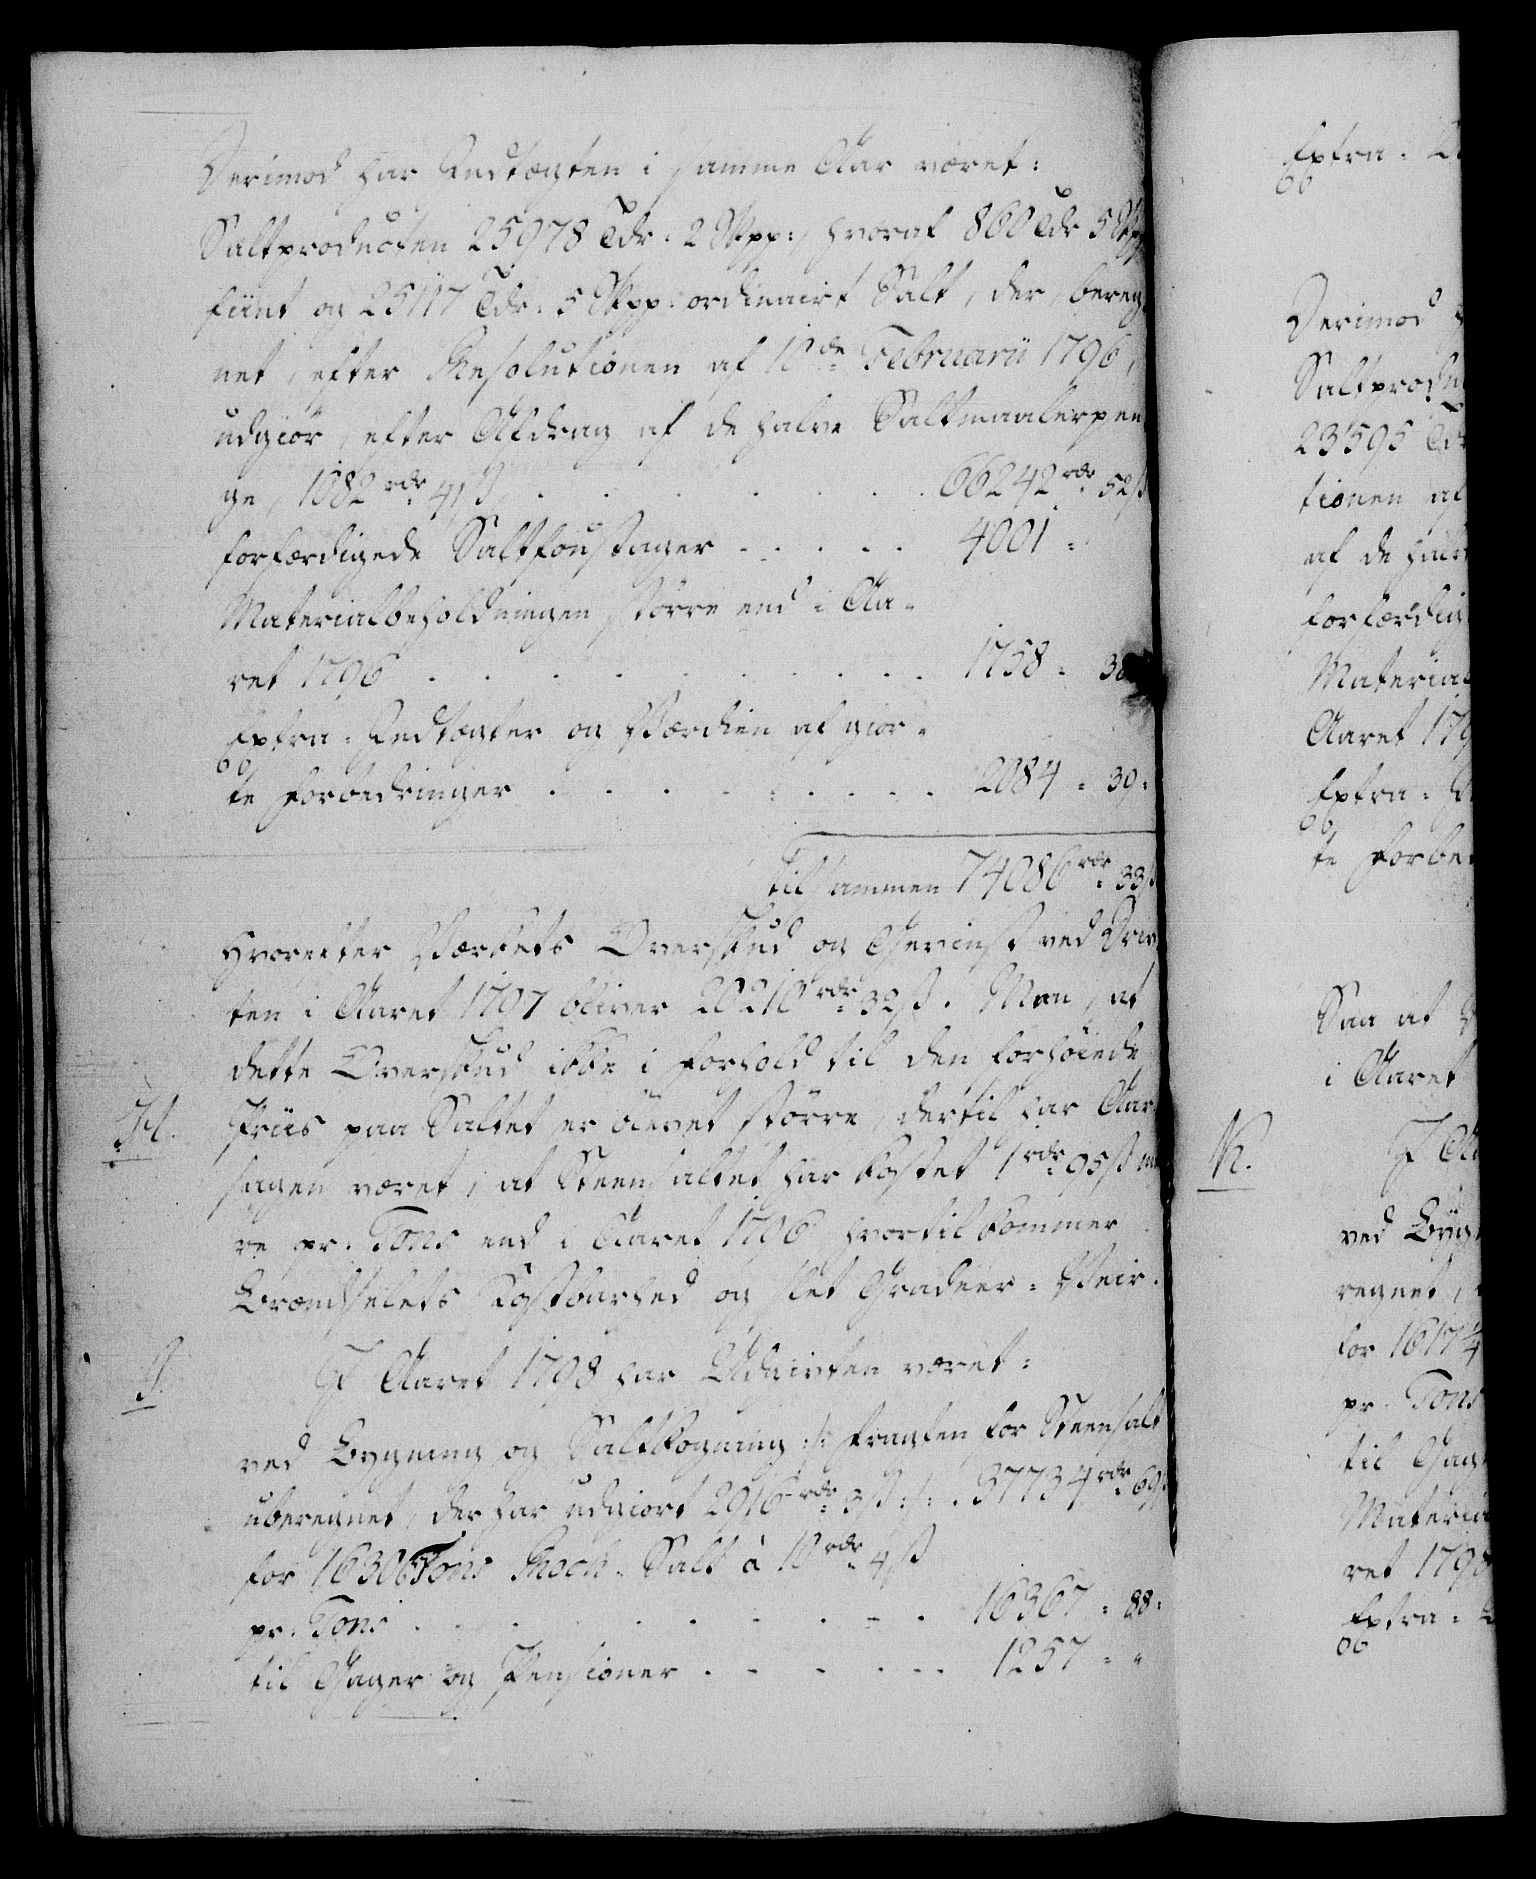 Derimod har Indtægten i samme Aar været:
Saltproducten 25978 Tdr. 2 Skpp:, hvoraf 860 Tdr 5 Skpp
fiint og 25117 Tdr. 5 Skpp: ordinairt Salt, der, bereg-
net, efter Resolutionen af 10de Februarii 1796,
udgiør, efter Afdrag af de halve Saltmaalerpen
ge, 1082 rdr. 41 ß, . . . . . . . 66242 rdr. 52 ß
forfærdigede Saltfoustager . . . . . 4001 =
Materialbeholdningen større end i Aa-
ret 1796 . . . . . . . . . . 1758 = 38
Extra-Indtægter og Værdien af gior-
te Forbedringer . . . . . . . . . 2084 = 39 =
tilsammen 74086 rdr. 33 ß
hvorefter Værkets Overskud og Gevinst ved Drif
ten i Aaret 1797 bliver 20210 rdr. 32 ß. Men, at
dette Overskud ikke i Forhold til den forhøiede
H. Priis paa Saltet er blevet større, dertil har Aar
sagen været, at Steensaltet har kostet 1 rdr. 95 ß me
re pr. Tons end i Aaret 1796 hvortil kommer
Brændselets Kostbarhed og slet Gradeer-Veir.
I. I Aaret 1798 har Udgivten været:
ved Bygning og Saltkogning :/: Fragten for Steensalt
uberegnet, der har udgiort 2916 rdr. 3 ß :/: . 37734 rdr. 69 ß
for 1630 6 Tons Rock-Salt à 10 rdr. 4 ß
pr. Tons . . . . . . . . . 16367 = 88 =
til Gager og Pensioner . . . . . . 1257 = "
Extra-
Derimod
Saltprodu
23595 Tdr
tionen af
af de halv
forfærdig
Material
Aaret 179
Extra-
te Forbe
Saa at
i Aaret
K. I Aa
ved Byg
regnet,
for 1617 4
pr. Tons
til Gag
Materia
ret 1798
Extra-